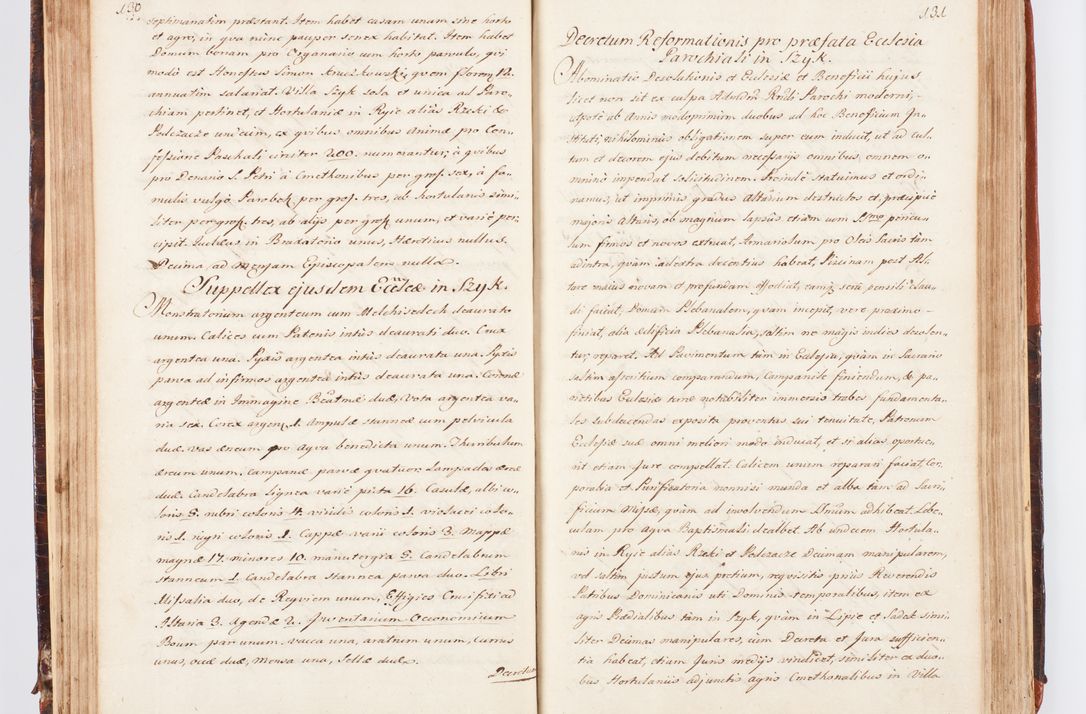 130
septimanatim præstant. Item habet casam unam sine horto
et agro, in qva nunc pauper senex habitat. Item habet
Domum terram pro Organario cum horto parvulo, qvi
modo est Honestus Simon Kruczkowski, qvem floren: 12.
annuatim salariat. Villa Szyk sola et unica ad Paro-
chiam pertinet, et Hortulaniæ in Ryie aliàs Rzeki &
Polczacze unicum, ex qvibus omnibus Animæ pro Con-
fessione Paschali circiter 400. numerantur; à qvibus
pro Denario S. Petri à Cmethonibus per gross. sex, à fa-
mulis vulgò Parobek per gross. tres, ab hortulanis simi-
liter per gross. tres, ab alijs per gross. unum, et varie per-
cipit. Judæus in Braxatorio unus, Hæreticus nullus.
Decima, ad Mensam Episcopalem nulla.
Suppellex ejusdem Ecclæ in Szyk.
Monstratorium argenteum cum Melchisedech deaurato
unum. Calices cum Patenis intùs deaurati duo. Crux
argentea una. Pyxis argentea intùs deaurata una. Pyxis
parva ad infirmos argentea intùs deaurata una. Coronæ
argenteæ in Immagine Beatmæ duæ, Vota argentea va-
ria sex. Corda argen: 1. Ampulæ stanneæ cum pelvicula
duæ. vas æreum pro Aqva benedicta unum. Thuribulum
æreum unum, campanæ parvæ qvatuor, Lampades æreæ
duæ. Candelabra lignea variè picta 16. Casulæ, albi co-
loris 5. rubri coloris 4. viridis coloris 1. violacei colo-
ris 1. nigri coloris 1. Cappæ varii coloris 3. Mappæ
magnæ 17. minores 10. manutergia 5. Candelabrum
stanneum 1. Candelabra stannea parva duo. Libri
Missalia duo, de Reqviem unum, Effigies Crucifixi ad
Altaria 3. Agendæ 2. Inventarium Oeconomicum
Boum par unum, vacca una, aratrum unum, currus
unus, oves duæ, mensa una, sellæ duæ.
Decretum
131
Decretum Reformationis pro præfata Ecclesia
Parochiali in Szyk.
Abominatio Desolationis et Ecclesiæ et Beneficii hujus,
licet non sit ex culpa Admdm Rndi Parochi moderni,
utpotè ab Annis modoprimùm duobus ad hoc Beneficium In-
stituti, nihilominùs obligationem super eum inducit, ut ad cul-
tum et decorem ejus debitum necessarijs omnibus, omnem o-
mninò impendat solicitudinem. Proindè statuimus et ordi-
namus, ut imprimis gradus Altarium destructos et præcipuè
majoris Altaris, ob magnum lapsûs etiam cum Ssmo pericu-
lum firmos et novos extruat, Armariolum pro Oleis Sacris tam
adintra, qvàm adextra decentius habeat, Piscinam post Al-
tare majus novam et profundam effodiat, eamq; serâ pensili clau-
di faciat, Domum Plebanalem, qvam incepit, verè proximo
finiat, alia ædificia Plebanalia, saltim ne magis indies desolen-
tur, reparet. Ad Pavimentum tam in Ecclesia, qvàm in Sacrario
saltim asseritium comparandum, Campanile finiendum, & pa-
rietibus Ecclesiæ terræ notabiliter immersis trabes fundamenta-
les subducendas exposita proventus sui tenuitate, Patronum
Ecclesiæ suæ omni meliori modo inducat, et si alias oportue-
rit etiam Jure compellat. Calicem unum reparari faciat, Cor-
poralia et Purificatoria nonnisi munda et alba tam ad Sacri-
ficium Missæ, qvàm ad involvendum Sacrum adhibeat. Lebe-
culam pro Aqva Baptismali dealbet. Ab undecem Hortula-
nis in Ryie aliàs Rzeki et Polczacze Decimam manipularem,
vel saltim justum ejus pretium, reqvisitis priùs Reverendis
Patribus Dominicanis uti Dominis temporalibus, item ex
agris Prædialibus tam in Szyk, qvàm in Lipie et Sadek simi-
liter Decimas manipulares, cùm Decreta et Jura sufficien-
tia habeat, etiam Juris medijs vindicet, similiter ex duo-
bus Hortulaniis adjunctis agris Cmethonalibus in Villa